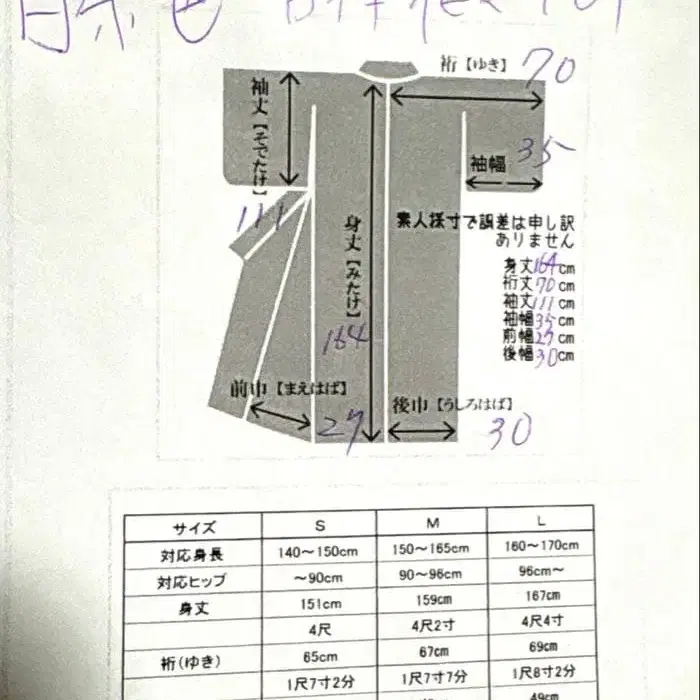 裄【ゆき】 70
袖丈【そでたけ】
111
袖幅 35
身丈【みたけ】
164
素人採寸で誤差は申し訳
ありません
身丈164cm
裄丈70cm
袖丈111cm
袖幅35cm
前幅27cm
後幅30cm
前巾【まえはば】
27
後巾【うしろはば】
30
サイズ S M L
対応身長 140～150cm 150～165cm 160～170cm
対応ヒップ ～90cm 90～96cm 96cm～
身丈 151cm 159cm 167cm
4尺 4尺2寸 4尺4寸
裄(ゆき) 65cm 67cm 69cm
1尺7寸2分 1尺7寸7分 1尺8寸2分
49cm